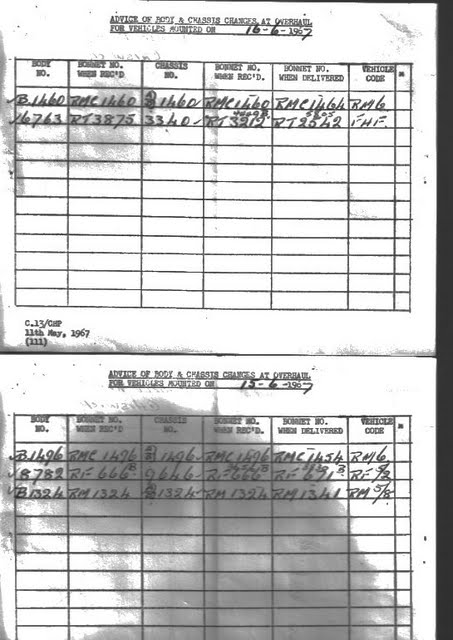 ADVICE OF BODY & CHASSIS CHANGES AT OVERHAUL
FOR VEHICLES MOUNTED ON 16-6-1967
BODY NO. BONNET NO. WHEN REC'D CHASSIS NO. BONNET NO. WHEN REC'D. BONNET NO. WHEN DELIVERED VEHICLE CODE
B1460 RMC1460 1460 RMC1460 RMC1464 RM6
6763 RT3875 3340 RT3212 RT2542
C.13/CHP
11th May, 1967
(111)
ADVICE OF BODY & CHASSIS CHANGES AT OVERHAUL
FOR VEHICLES MOUNTED ON 15-6-1967
BODY NO. BONNET NO. WHEN REC'D CHASSIS NO. BONNET NO. WHEN REC'D. BONNET NO. WHEN DELIVERED VEHICLE CODE
B1496 RMC1496 1496 RMC1496 RMC1454 RM6
8782 RF666 B 9646 RF666 RF671 B
B1324 RM1324 1324 RM1324 RM1341 RM5/8